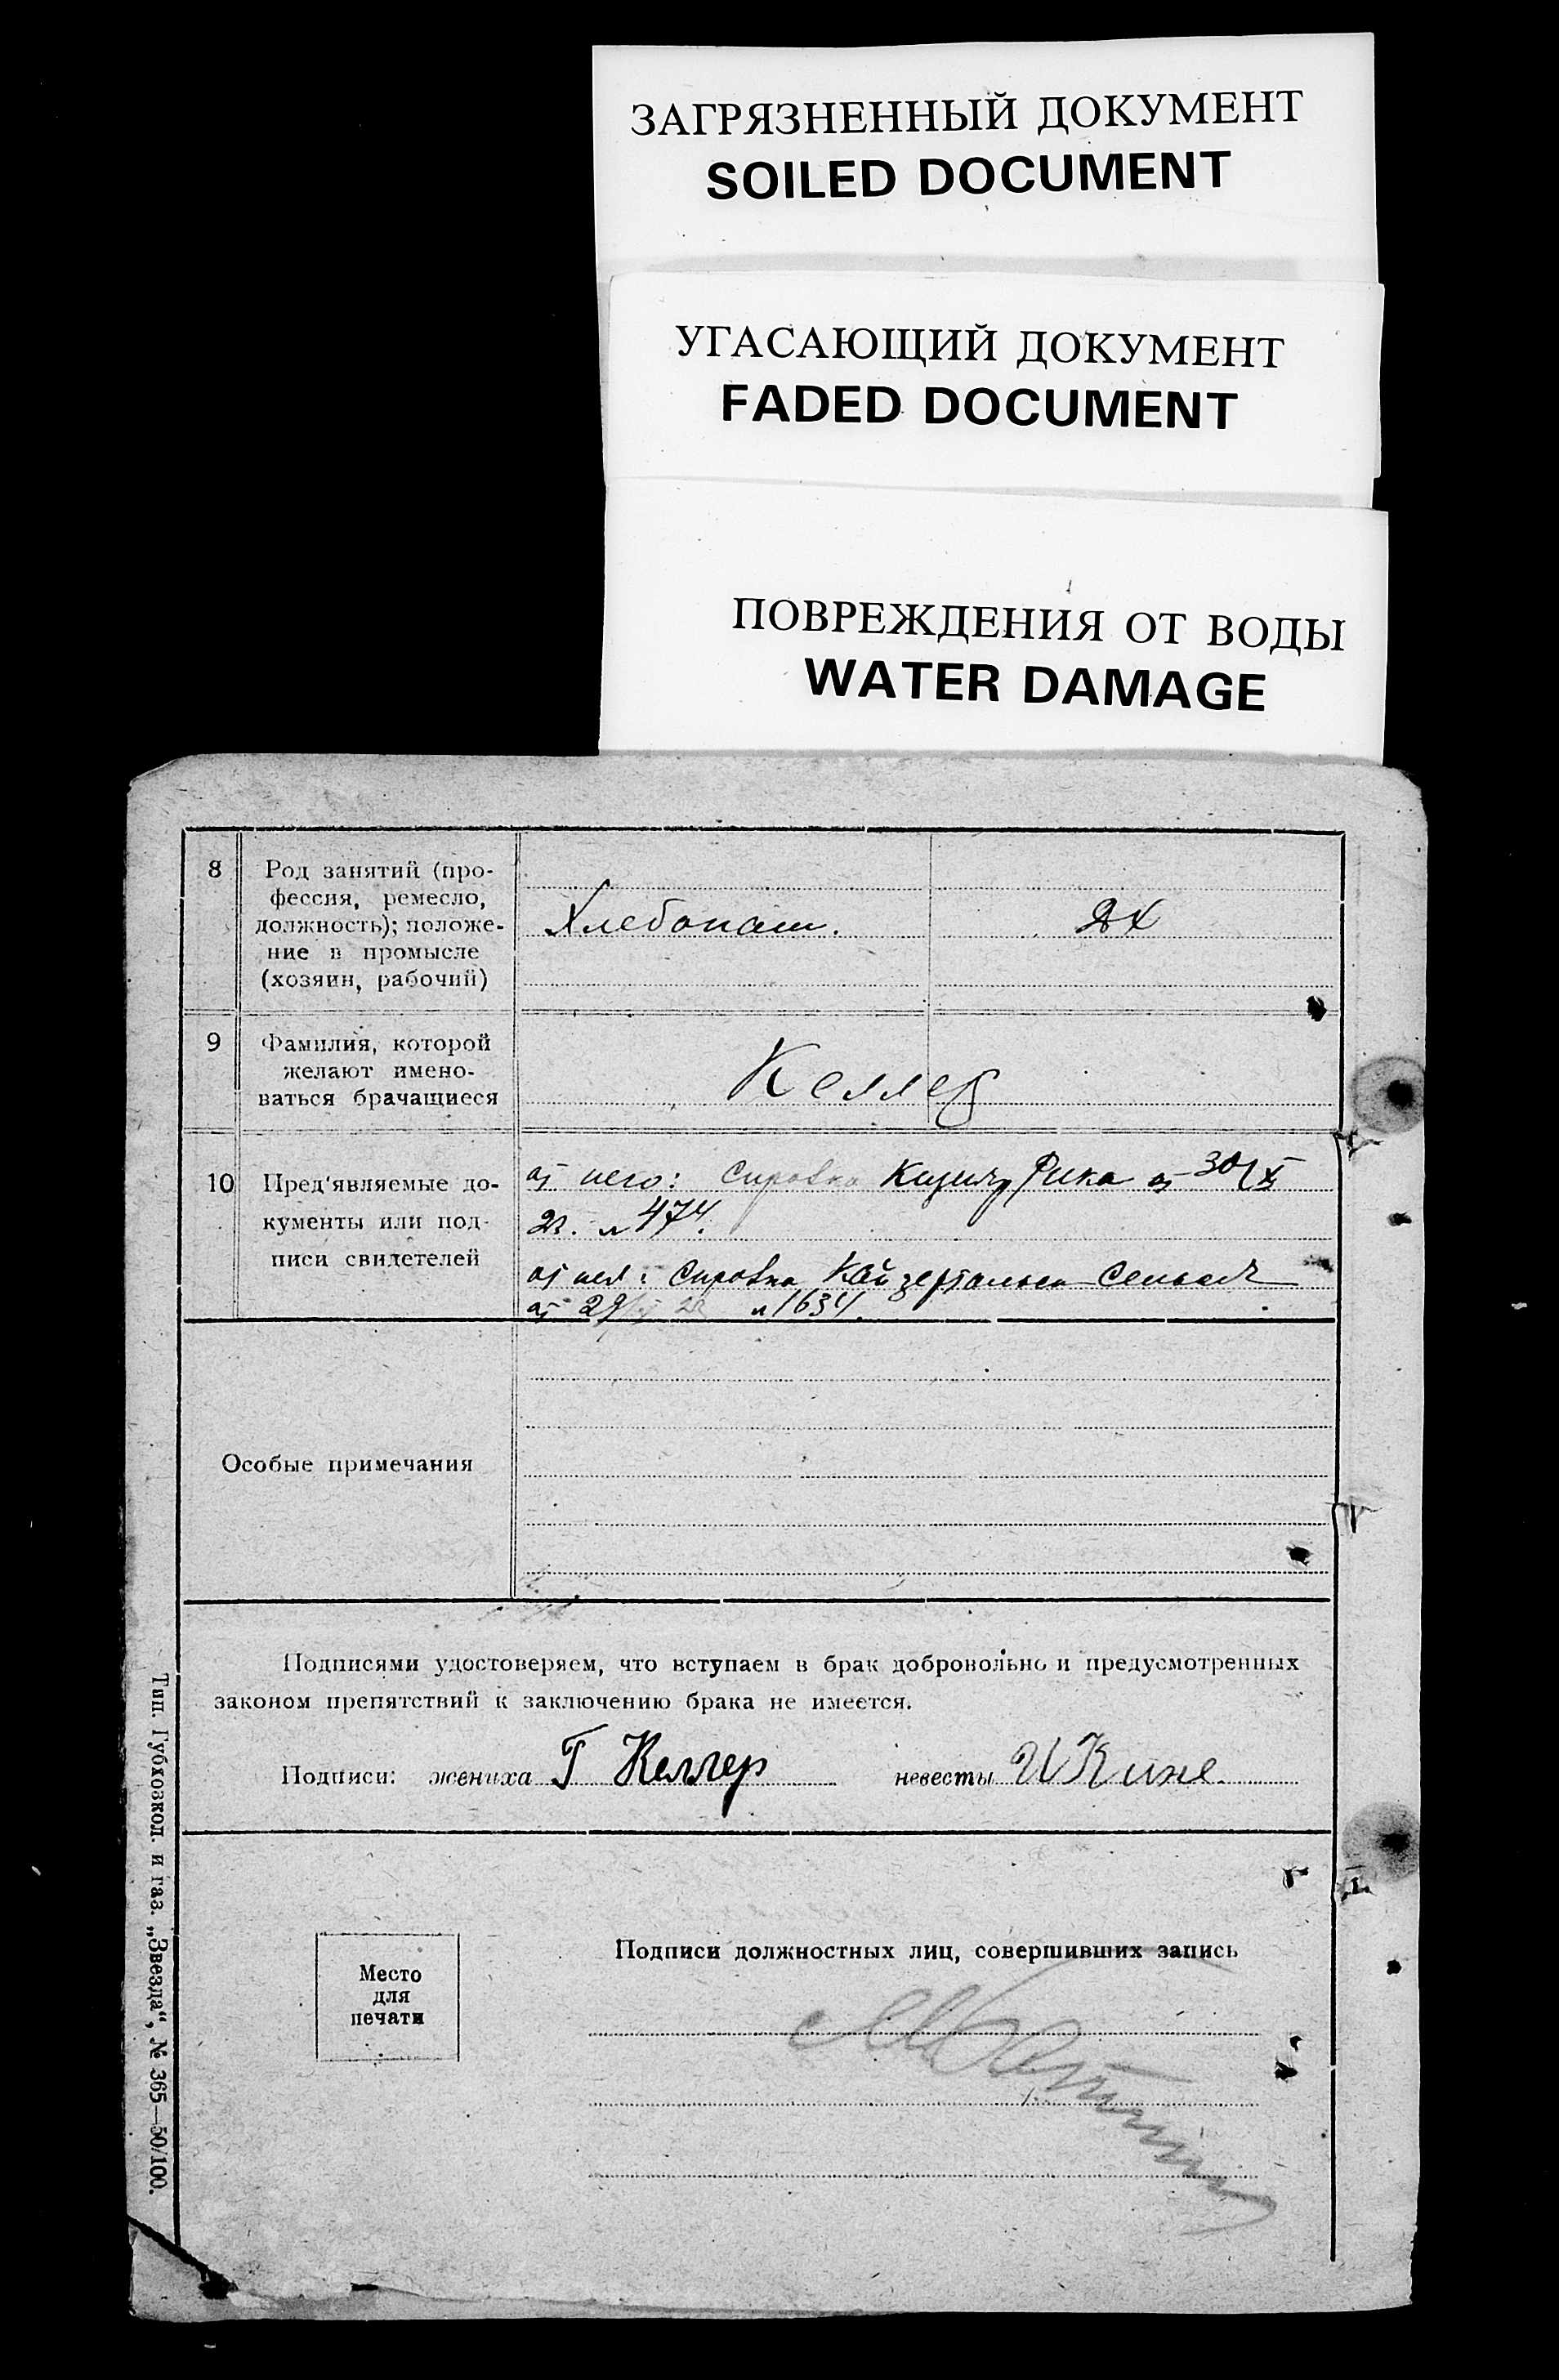 ЗАГРЯЗНЕННЫЙ ДОКУМЕНТ
SOILED DOCUMENT
УГАСАЮЩИЙ ДОКУМЕНТ
FADED DOCUMENT
ПОВРЕЖДЕНИЯ ОТ ВОДЫ
WATER DAMAGE
8
Род занятий (про-
фессия, ремесло,
должность); положе-
ние в промысле
(хозяин, рабочий)
Хлебопаш. ДХ
9
Фамилия, которой
желают имено-
ваться брачащиеся
Келлер
10
Пред'являемые до-
кументы или под-
писи свидетелей
от него: Справка Рика от 30/X
28. № 474.
от нея: Справка
от 29/ 28 № 1634.
Особые примечания
Подписями удостоверяем, что вступаем в брак добровольно и предусмотренных
законом препятствий к заключению брака не имеется.
Подписи: жениха Г Келлер невесты И Кине
Место
для
печати
Подписи должностных лиц, совершивших запись
Тип. Губхозкол. и газ. „Звезда", № 365—50/100.